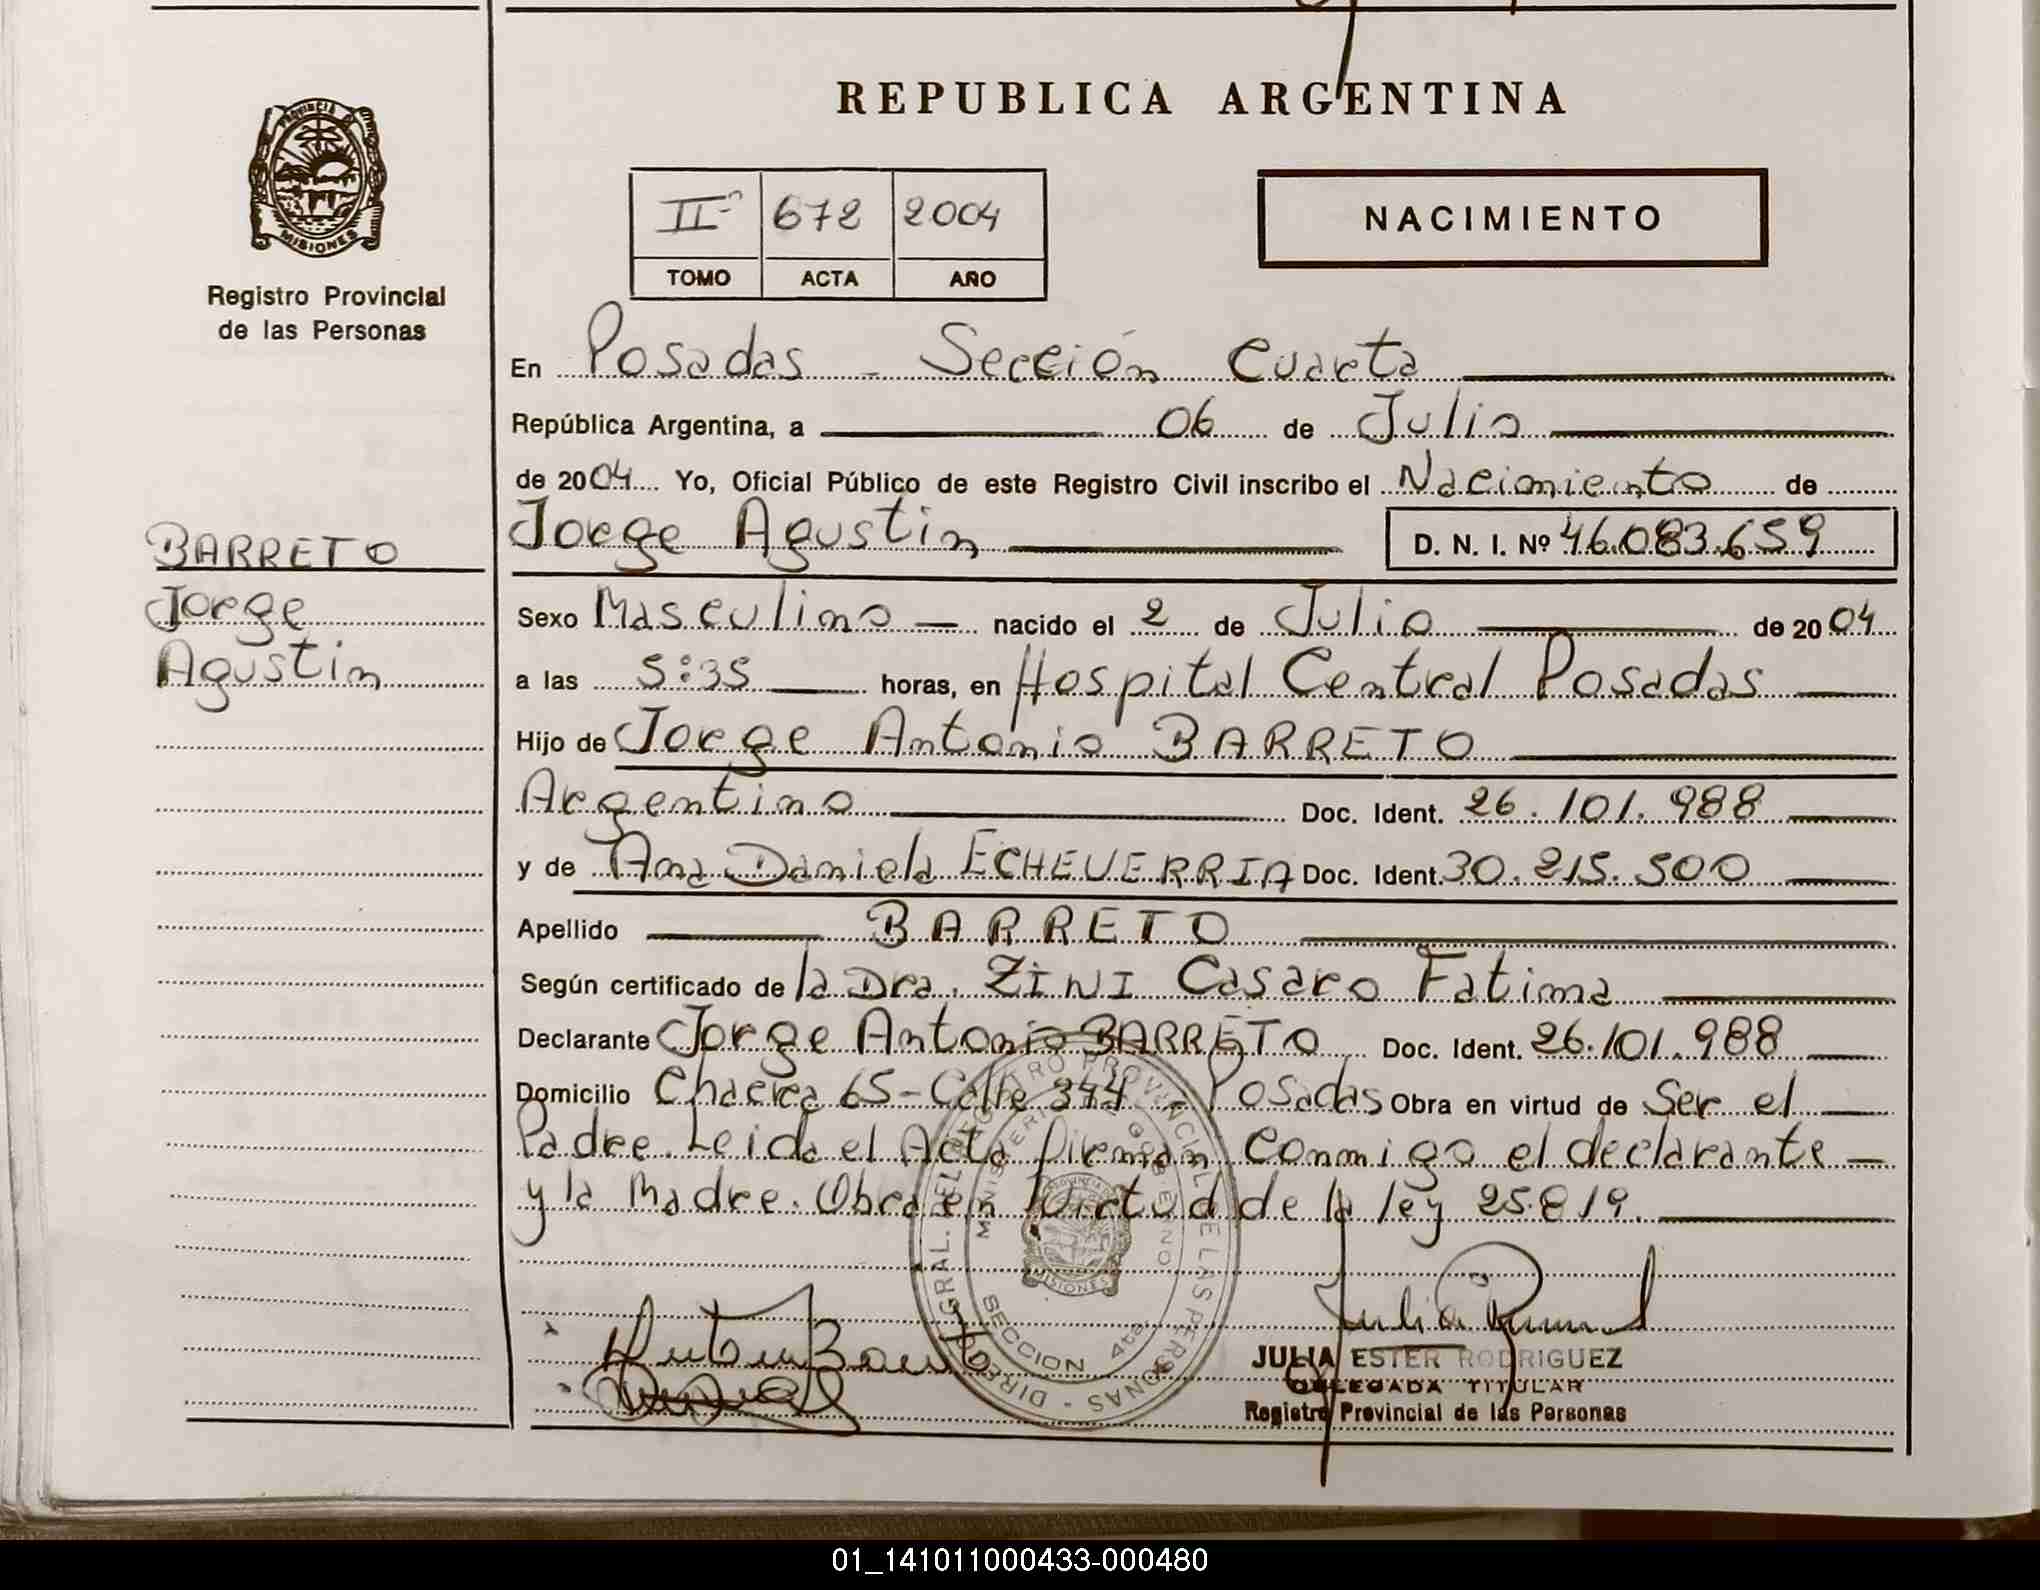 REPUBLICA ARGENTINA
PROVINCIA DE
MISIONES
Registro Provincial
de las Personas
II 672 2004
TOMO ACTA AÑO
NACIMIENTO
En Posadas - Sección Cuarta
República Argentina, a 06 de Julio
de 2004 Yo, Oficial Público de este Registro Civil inscribo el Nacimiento de
Jorge Agustin D. N. I. Nº 46.083.659
BARRETO
Jorge
Agustin
Sexo Masculino nacido el 2 de Julio de 2004
a las 5:35 horas, en Hospital Central Posadas
Hijo de Jorge Antonio BARRETO
Argentino Doc. Ident. 26.101.988
y de Ana Daniela ECHEVERRIA Doc. Ident. 30.215.500
Apellido BARRETO
Según certificado de la Dra. ZINI Casaro Fatima
Declarante Jorge Antonio BARRETO Doc. Ident. 26.101.988
Domicilio Chacra 65 - Calle 344 - Posadas Obra en virtud de Ser el
Padre. Leida el Acta firman conmigo el declarante
y la Madre. Obra en Virtud de la ley 25.819.
DIREC. GRAL. DEL REGISTRO PROVINCIAL DE LAS PERSONAS -
MINISTERIO DE GOBIERNO
MISIONES
SECCION 4ta.
JULIA ESTER RODRIGUEZ
DELEGADA TITULAR
Registro Provincial de las Personas
01_141011000433-000480